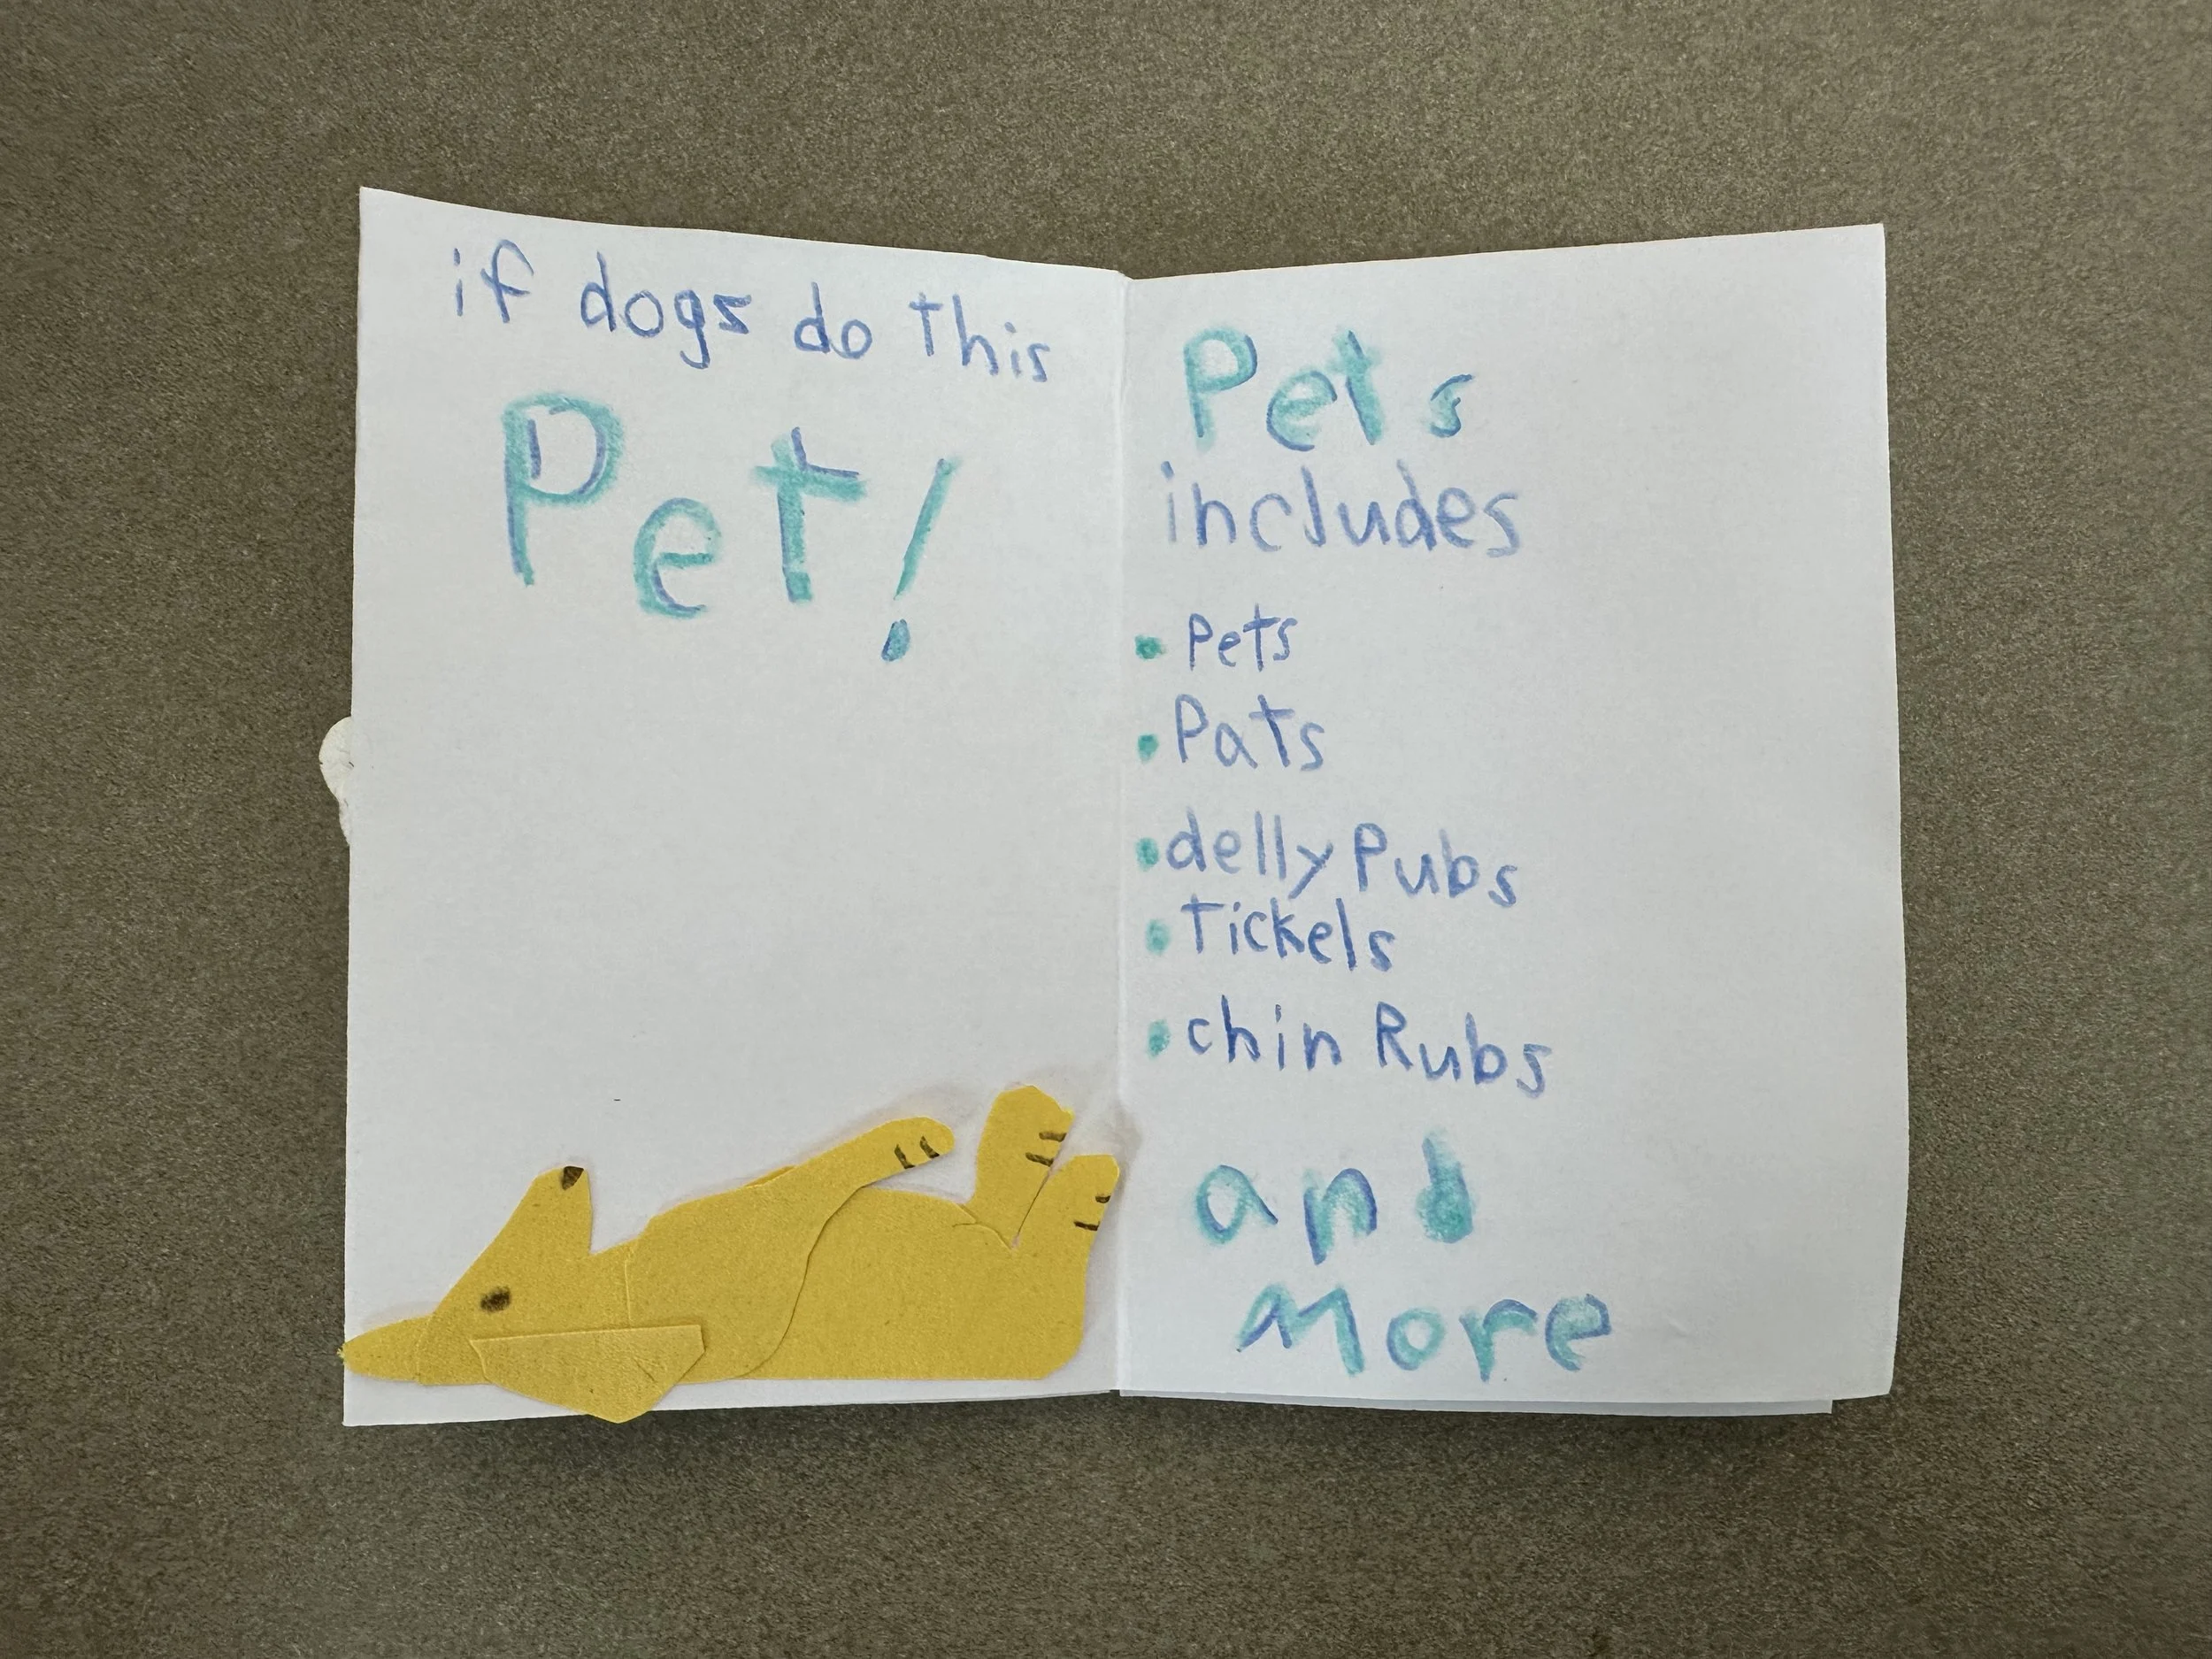 if dogs do this
Pet!
Pets
includes
• Pets
• Pats
• delly Pubs
• Tickels
• chin Rubs
and
More